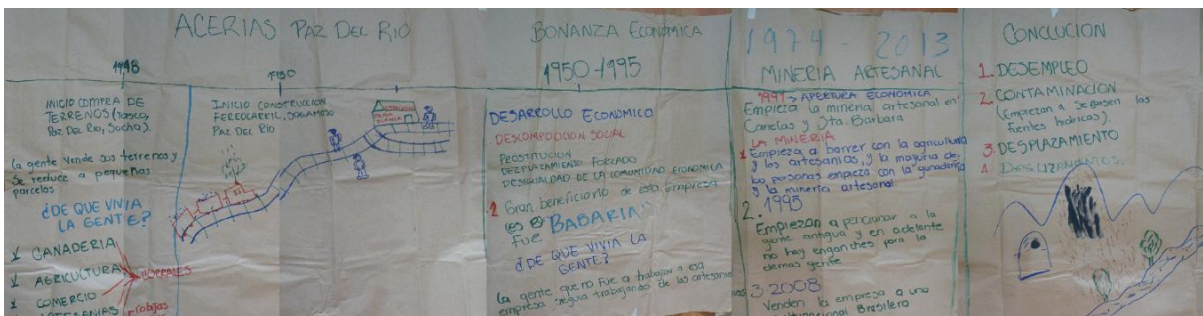 ACERIAS PAZ DEL RIO
1948
INICIO COMPRA DE
TERRENOS (Tasco,
Paz Del Rio, Socha).
La gente vende sus terrenos y
se reduce a pequeñas
parcelas
¿DE QUE VIVIA
LA GENTE?
GANADERIA
AGRICULTURA
COMERCIO
ARTESANIAS
cobijas
1950
INICIO CONSTRUCCION
FERROCARRIL, SOGAMOSO
PAZ DEL RIO
BONANZA ECONÓMICA
1950-1995
DESARROLLO ECONOMICO
DESCOMPOCICION SOCIAL
PROSTITUCION
DEZPLAZAMIENTO FORZADO
DESIGUALDAD DE LA COMUNIDAD ECONOMICA
1 Gran beneficiario de esta Empresa
fue "BABARIA"
¿DE QUE VIVIA LA
GENTE?
La gente que no fue a trabajar a esa
empresa seguia trabajando de las artesanias
1974 - 2013
MINERIA ARTESANAL
1997 → APERTURA ECONOMICA
Empieza la mineria artesanal en
Canelas y Sta. Barbara
LA MINERIA
1 Empieza a barrer con la agricultura
y las artesanias, y la mayoria de
las personas empieza con la ganaderia
y la mineria artesanal.
2. 1995
Empiezan a pencionar a la
gente antigua y en adelante
no hay enganches para la
demas gente
3. 2008
Venden la empresa a una
multinacional Brasilera
CONCLUCION
1. DESEMPLEO
2. CONTAMINACION
(Empiezan a secarsen las
fuentes hidricas).
3. DESPLAZAMIENTO
4. DESLIZAMIENTOS.